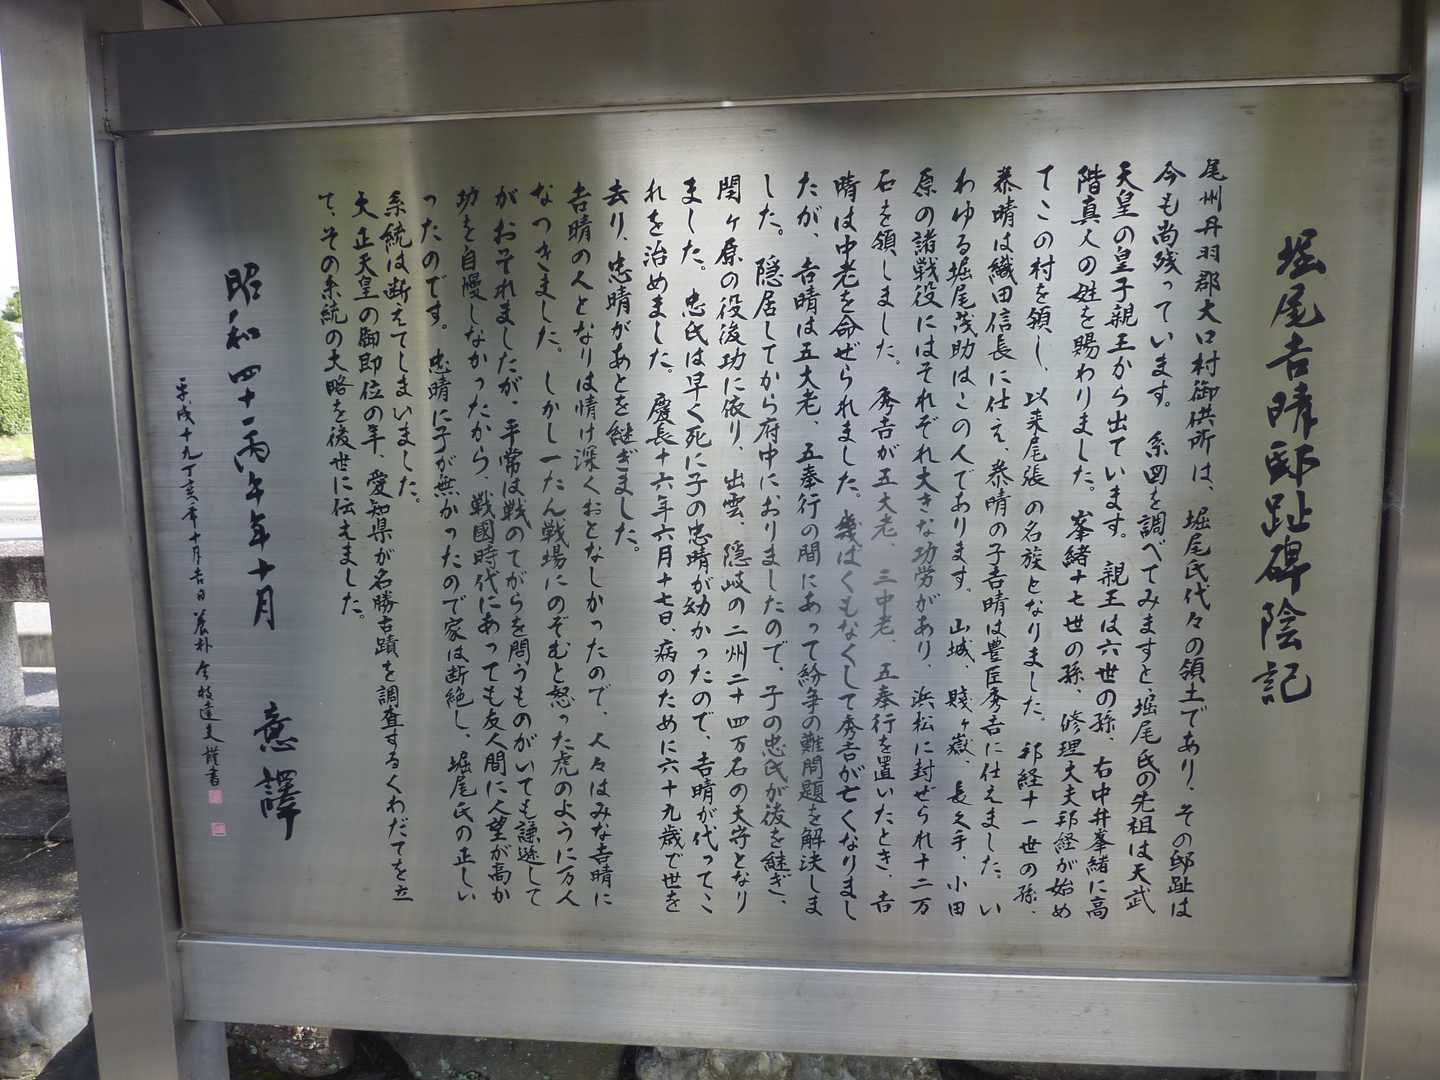 堀尾吉晴邸趾碑陰記
尾州丹羽郡大口村御供所は、堀尾氏代々の領土であり、その邸趾は
今も尚残っています。系図を調べてみますと堀尾氏の先祖は天武
天皇の皇子親王から出ています。親王は六世の孫、右中弁峯緒に高
階真人の姓を賜わりました。峯緒十七世の孫、修理大夫邦経が始め
てこの村を領し、以来尾張の名族となりました。邦経十一世の孫、
泰晴は織田信長に仕え、泰晴の子吉晴は豊臣秀吉に仕えました。い
わゆる堀尾茂助はこの人であります。山城、賤ヶ嶽、長久手、小田
原の諸戦役にはそれぞれ大きな功労があり、浜松に封ぜられ十二万
石を領しました。秀吉が五大老、三中老、五奉行を置いたとき、吉
晴は中老を命ぜられました。幾ばくもなくして秀吉が亡くなりまし
たが、吉晴は五大老、五奉行の間にあって紛争の難問題を解決しま
した。隠居してから府中におりましたので、子の忠氏が後を継ぎ、
関ヶ原の役後功に依り、出雲、隠岐の二州二十四万石の大守となり
ました。忠氏は早く死に子の忠晴が幼かったので、吉晴が代ってこ
れを治めました。慶長十六年六月十七日、病のために六十九歳で世を
去り、忠晴があとを継ぎました。
吉晴の人となりは情け深くおとなしかったので、人々はみな吉晴に
なつきました。しかし一たん戦場にのぞむと怒った虎のように万人
がおそれましたが、平常は戦のてがらを問うものがいても謙遜して
功を自慢しなかったから、戦國時代にあっても友人間に人望が高か
ったのです。忠晴に子が無かったので家は断絶し、堀尾氏の正しい
系統は断えてしまいました。
大正天皇の御即位の年、愛知県が名勝古蹟を調査するくわだてを立
て、その系統の大略を後世に伝えました。
昭和四十一丙午年十月 意譯
平成十九丁亥年十月吉日 今枝達夫謹書